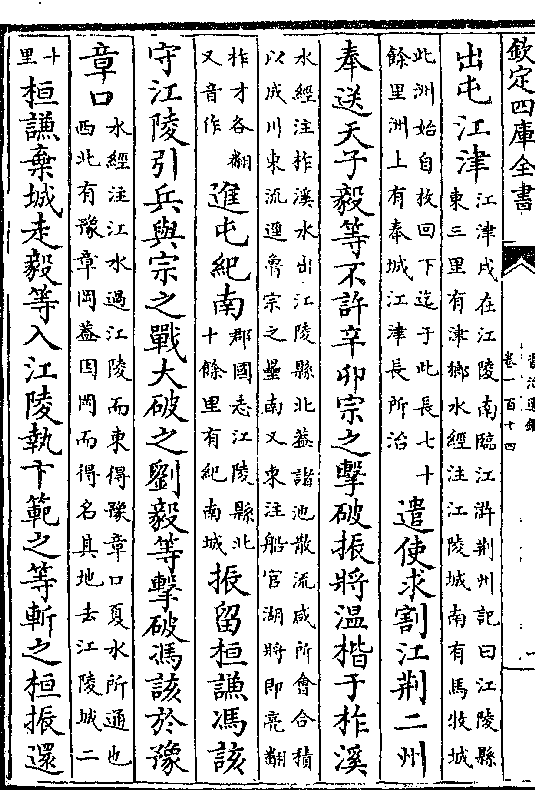 欽定四庫全書
資治通鑑
卷一百十四
出屯江津
江津戍在江陵南臨江滸荆州記曰江陵縣
東三里有津鄉水經注江陵城南有馬牧城
此洲始自枚回下迄于此長七十
餘里洲上有奉城江津長所治
遣使求割江荆二州
奉送天子毅等不許辛卯宗之擊破振將温楷于柞溪
水經注柞溪水出江陵縣北蓋諸池散流咸所會合積
以成川東流逕魯宗之壘南又東注船官湖將即亮翻
柞才各翻
又音作
進屯紀南
郡國志江陵縣北
十餘里有紀南城
振留桓謙馮該
守江陵引兵與宗之戰大破之劉毅等擊破馮該於豫
章口
水經注江水過江陵而東得豫章口夏水所通也
西北有豫章岡蓋因岡而得名其地去江陵城二
十
里
桓謙棄城走毅等入江陵執卞範之等斬之桓振還